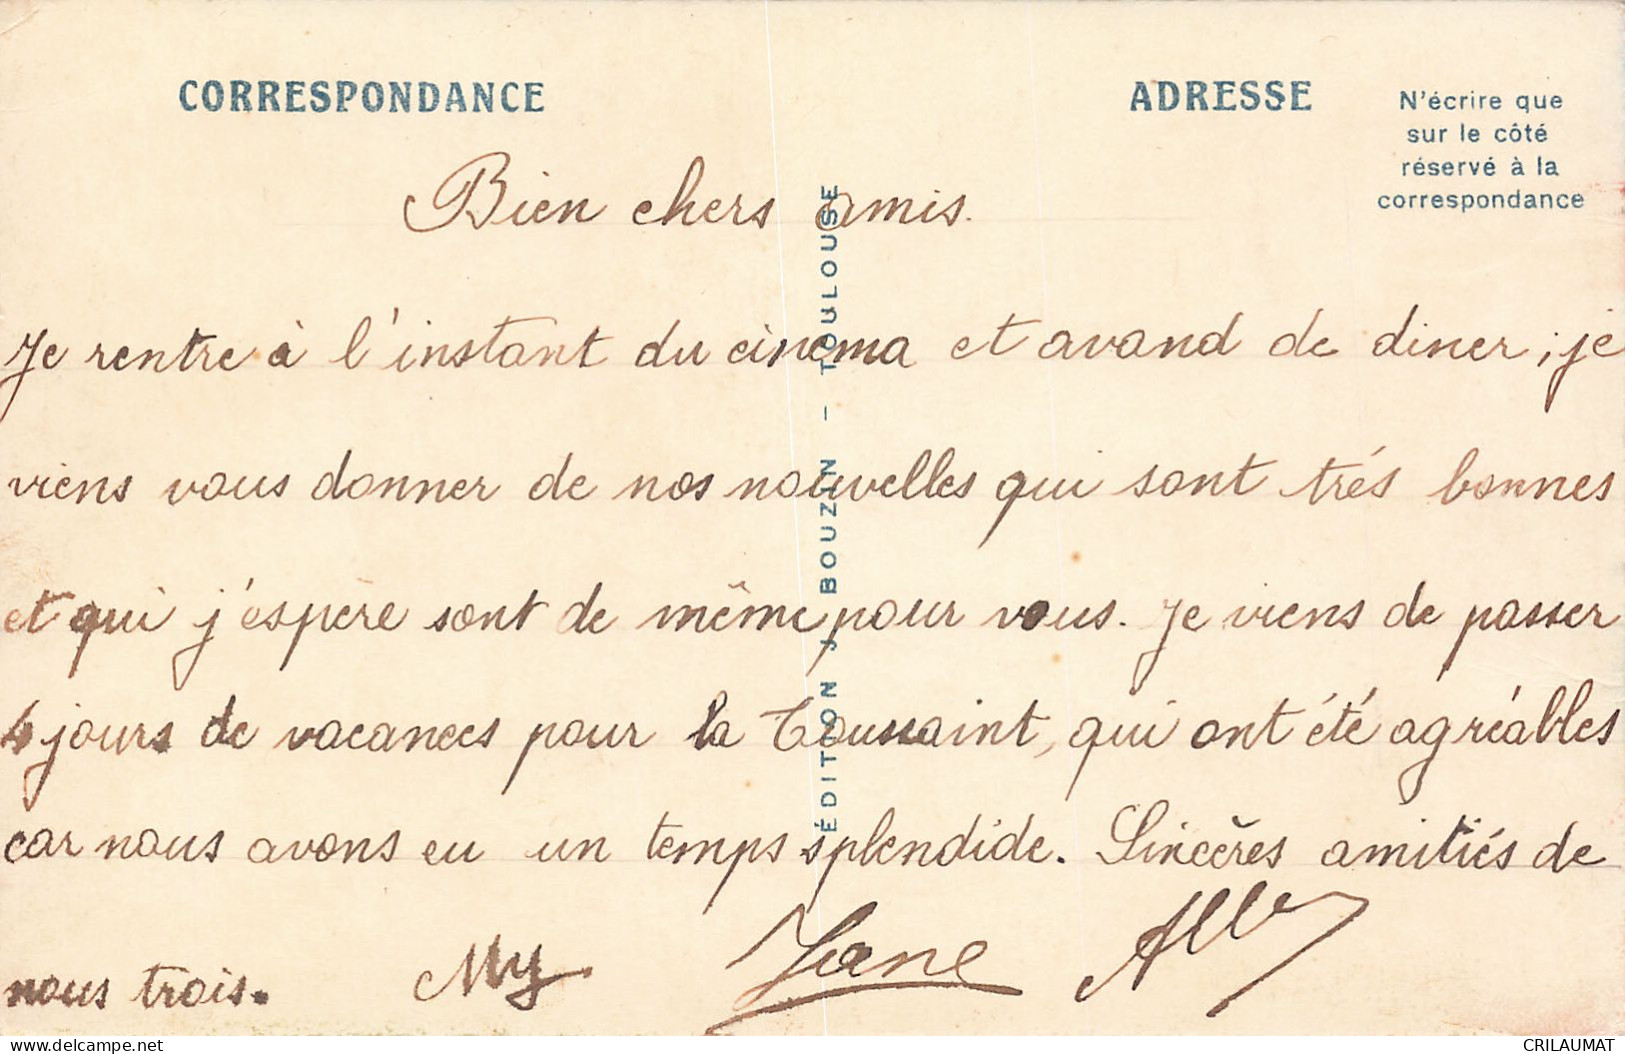 CORRESPONDANCE
ADRESSE
N'écrire que
sur le côté
réservé à la
correspondance
Bien chers amis.
Je rentre à l'instant du cinema et avand de diner, je
viens vous donner de nos nouvelles qui sont trés bonnes
et qui j'espère sont de même pour vous. Je viens de passer
4 jours de vacances pour la Toussaint, qui ont été agréables
car nous avons eu un temps splendide. Sincères amitiés de
nous trois.
ÉDITION J BOUZIN - TOULOUSE
delcampe.net
CRILAUMAT